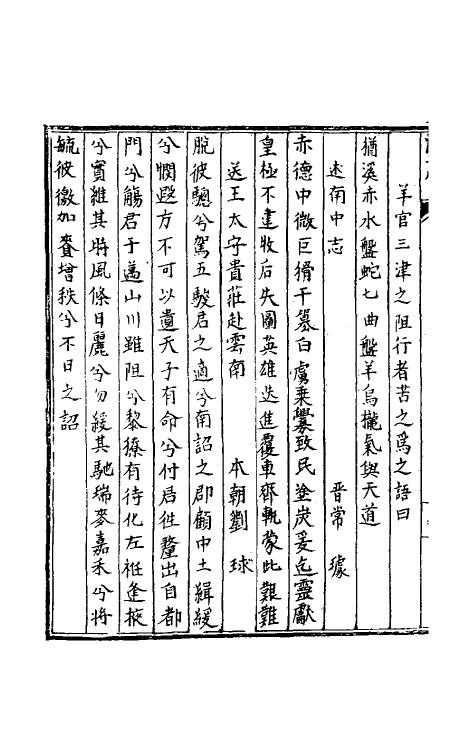 羊官三津之阻行者苦之爲之語曰
楢溪赤水盤蛇七曲盤羊烏櫳氣與天通
述南中志　晉常　璩
赤德中微巨猾干篡白虜乗舋致民塗炭爰迄靈獻
皇極不建牧后失圖英雄迭進覆車齊軌䝉此艱難
送王太守貴莊赴雲南　本朝劉　球
脫彼驄兮駕五駿君之適兮南詔之郡顧中土緝綏
兮憫遐方不可以遺天子有命兮付君徃釐出自都
門兮觴君于薖山川雖阻兮黎獠有待化左袵逢掖
兮實維其時風條日麗兮勿緩其馳瑞麥嘉禾兮將
毓彼徼加賚增秩兮不日之詔